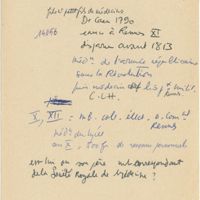 fils et petit fils de médecins
Dr Caen 1790
14056 venu à Rennes XI
disparu avant 1813
méd. de l'armée républicaine
sous la Révolution
puis médecin chef hôp. milit.
Rennes
C.L.H.
X, XII = mb. coll. élect. com
Rennes
méd. du lycée
an X, 300 fr de revenus personnels
est-ce lui ou son père mb correspondant
de la Société Royale de Médecine ?